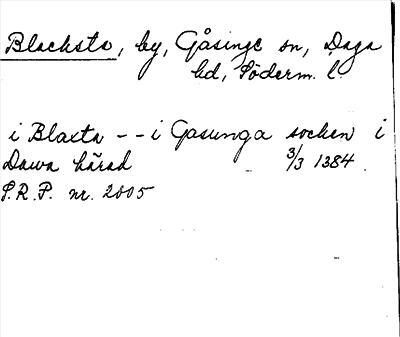 Blacksta, by, Gåsinge sn, Daga
hd, Söderm. l.
i Blaxta -- i Gasunga socken i
Dawa härad 3/3 1384
S.R.P. nr. 2005